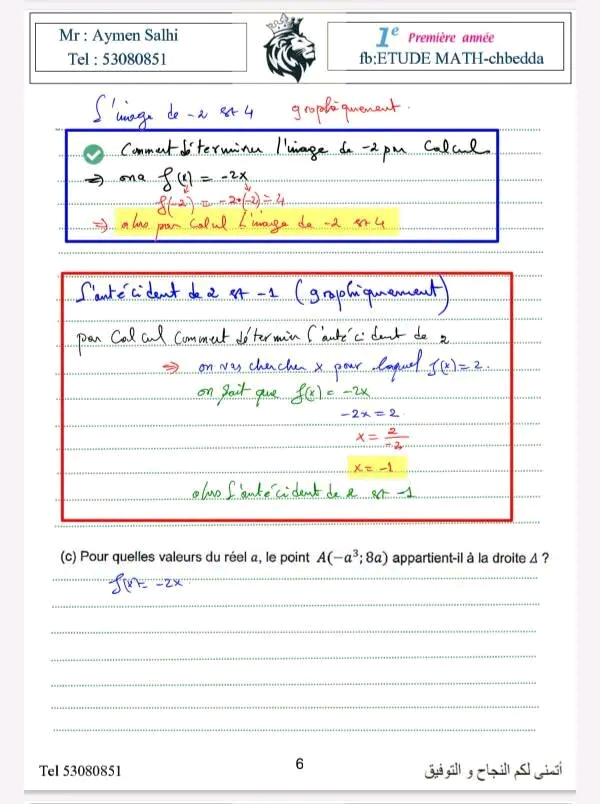 Mr : Aymen Salhi
Tel : 53080851
1e Première année
fb;ETUDE MATH-chbedda
L'image de -2 est 4 graphiquement.
Comment déterminer l'image de -2 par Calcul
⇒ on a f(x) = -2x
f(-2) = -2×(-2) = 4
⇒ alors par Calcul L'image de -2 est 4
L'antécident de 2 est -1 (graphiquement)
par Calcul Comment détermin l'antécident de 2
⇒ on vas chercher x pour laquel f(x) = 2.
on sait que f(x) = -2x
-2x = 2
x = 2/-2
x = -1
alors l'antécident de 2 est -1
(c) Pour quelles valeurs du réel a, le point A(−a³; 8a) appartient-il à la droite Δ ?
f(x) = -2x
Tel 53080851
6
أتمنى لكم النجاح و التوفيق